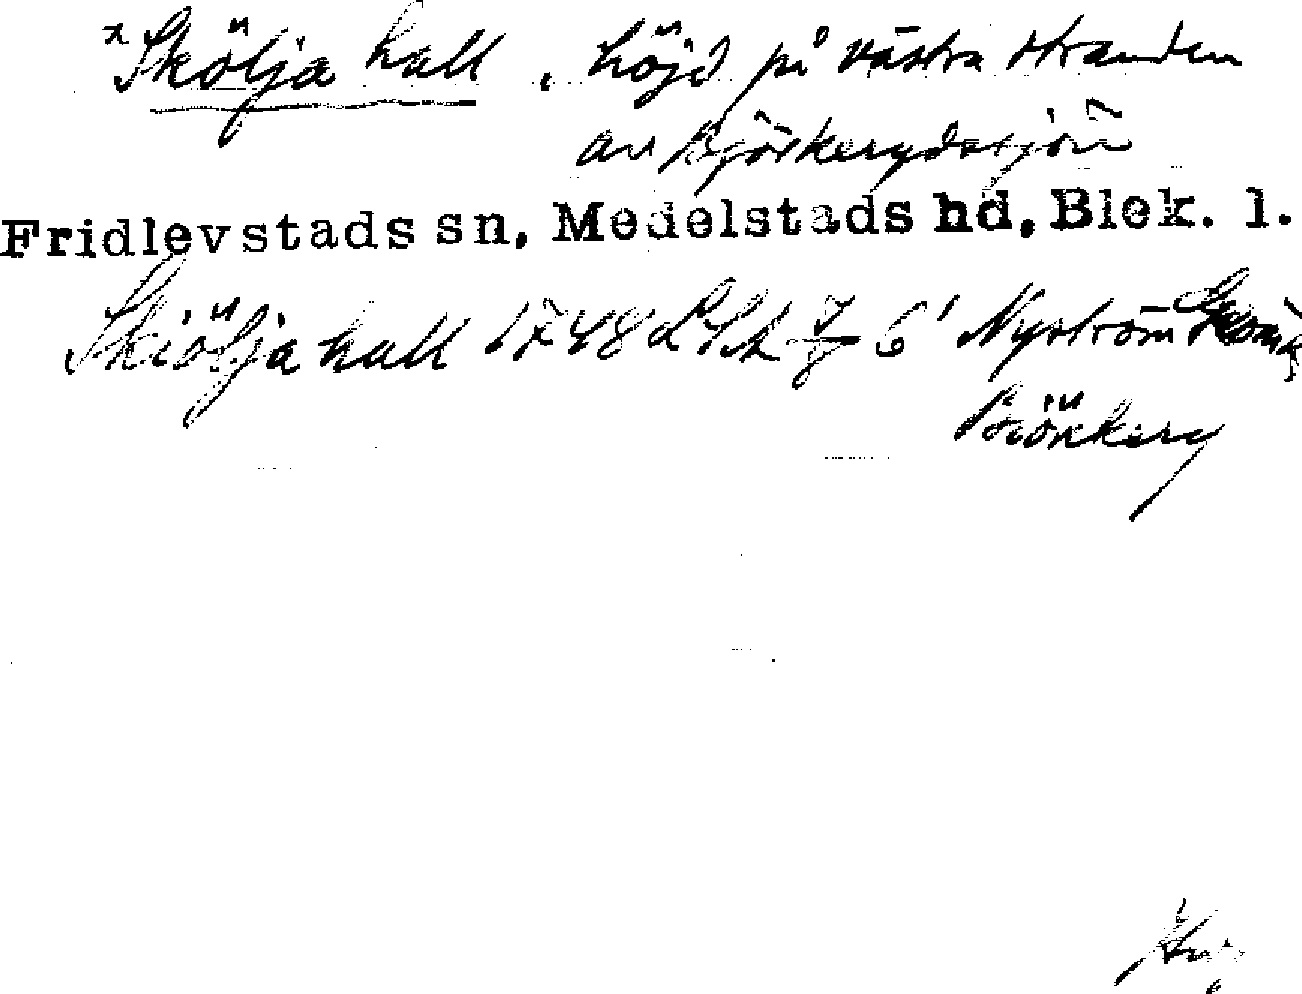 x Skölja hall, höjd på västra stranden
av Björkerydssjön
Fridlevstads sn, Medelstads hd, Blek. l.
Skiölja hall 1748 LSA 6' Nyström
Biörkery